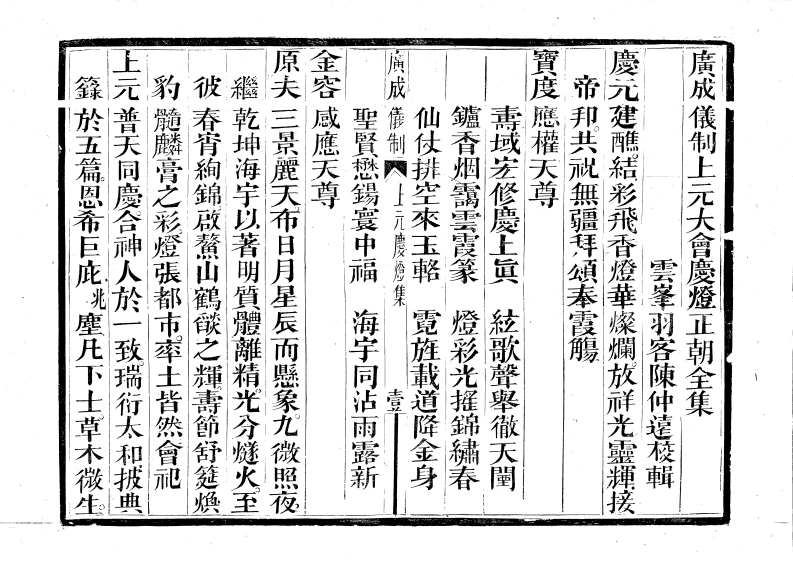 廣成儀制上元大會慶燈正朝全集
雲峯羽客陳仲遠校輯
慶元建醮。結彩飛香燈華燦爛。放祥光靈輝接
帝邦。共祝無疆拜頌奉霞觴
寶度應權天尊
壽域宏修慶上眞　絃歌聲舉徹天闉
鑪香烟靄雲霞篆　燈彩光搖錦繡春
仙仗排空來玉輅　霓旌載道降金身
聖賢懋錫寰中福　海宇同沾雨露新
廣成儀制　上元慶燈集　壹
金容感應天尊
原夫三景麗天布日月星辰而懸象。九微照夜。
繼乾坤海宇以著明質體離精。光分燧火。至
彼春宵絢錦。啟鰲山鶴燄之輝。壽節舒筵煥
豹髓麟膏之彩燈張都市。率土皆然會祀
上元普天同慶合神人於一致。瑞衍太和披典
籙於五篇。恩希巨庇兆塵凡下士。草木微生。